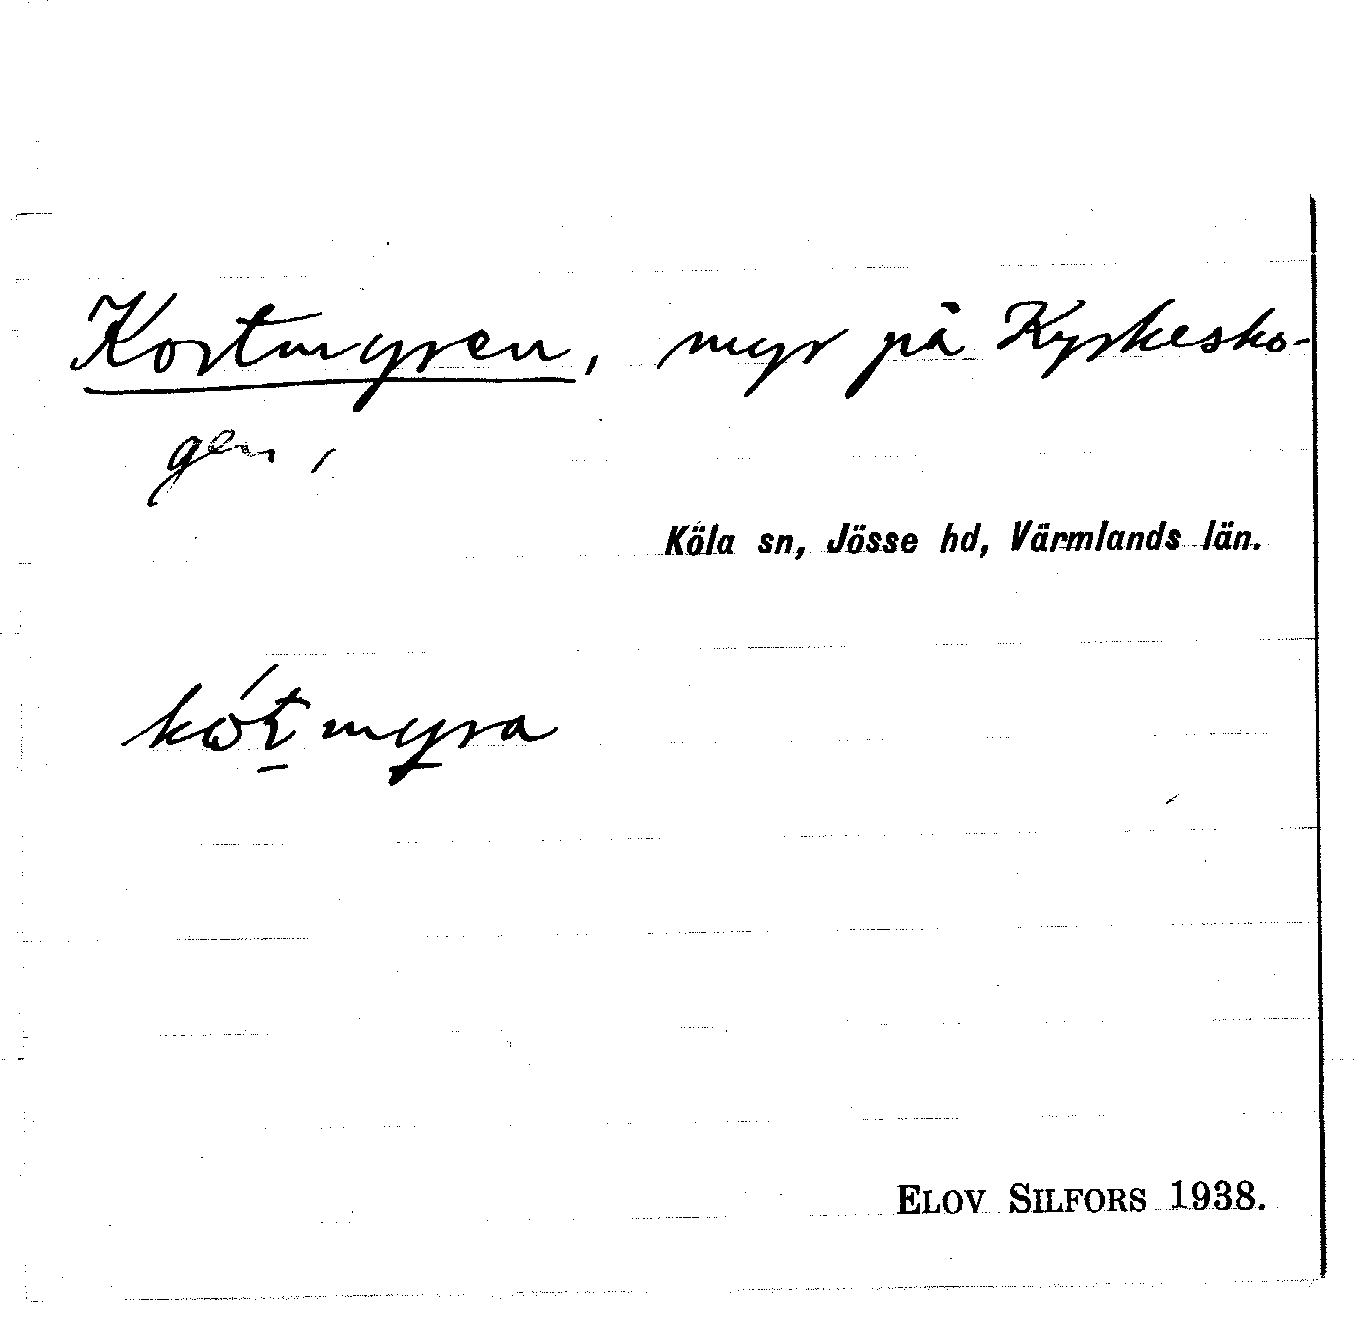 Kortmyren, myr på Kyrkesko-
gen,
Köla sn, Jösse hd, Värmlands län.
kót myra
ELOV SILFORS 1938.